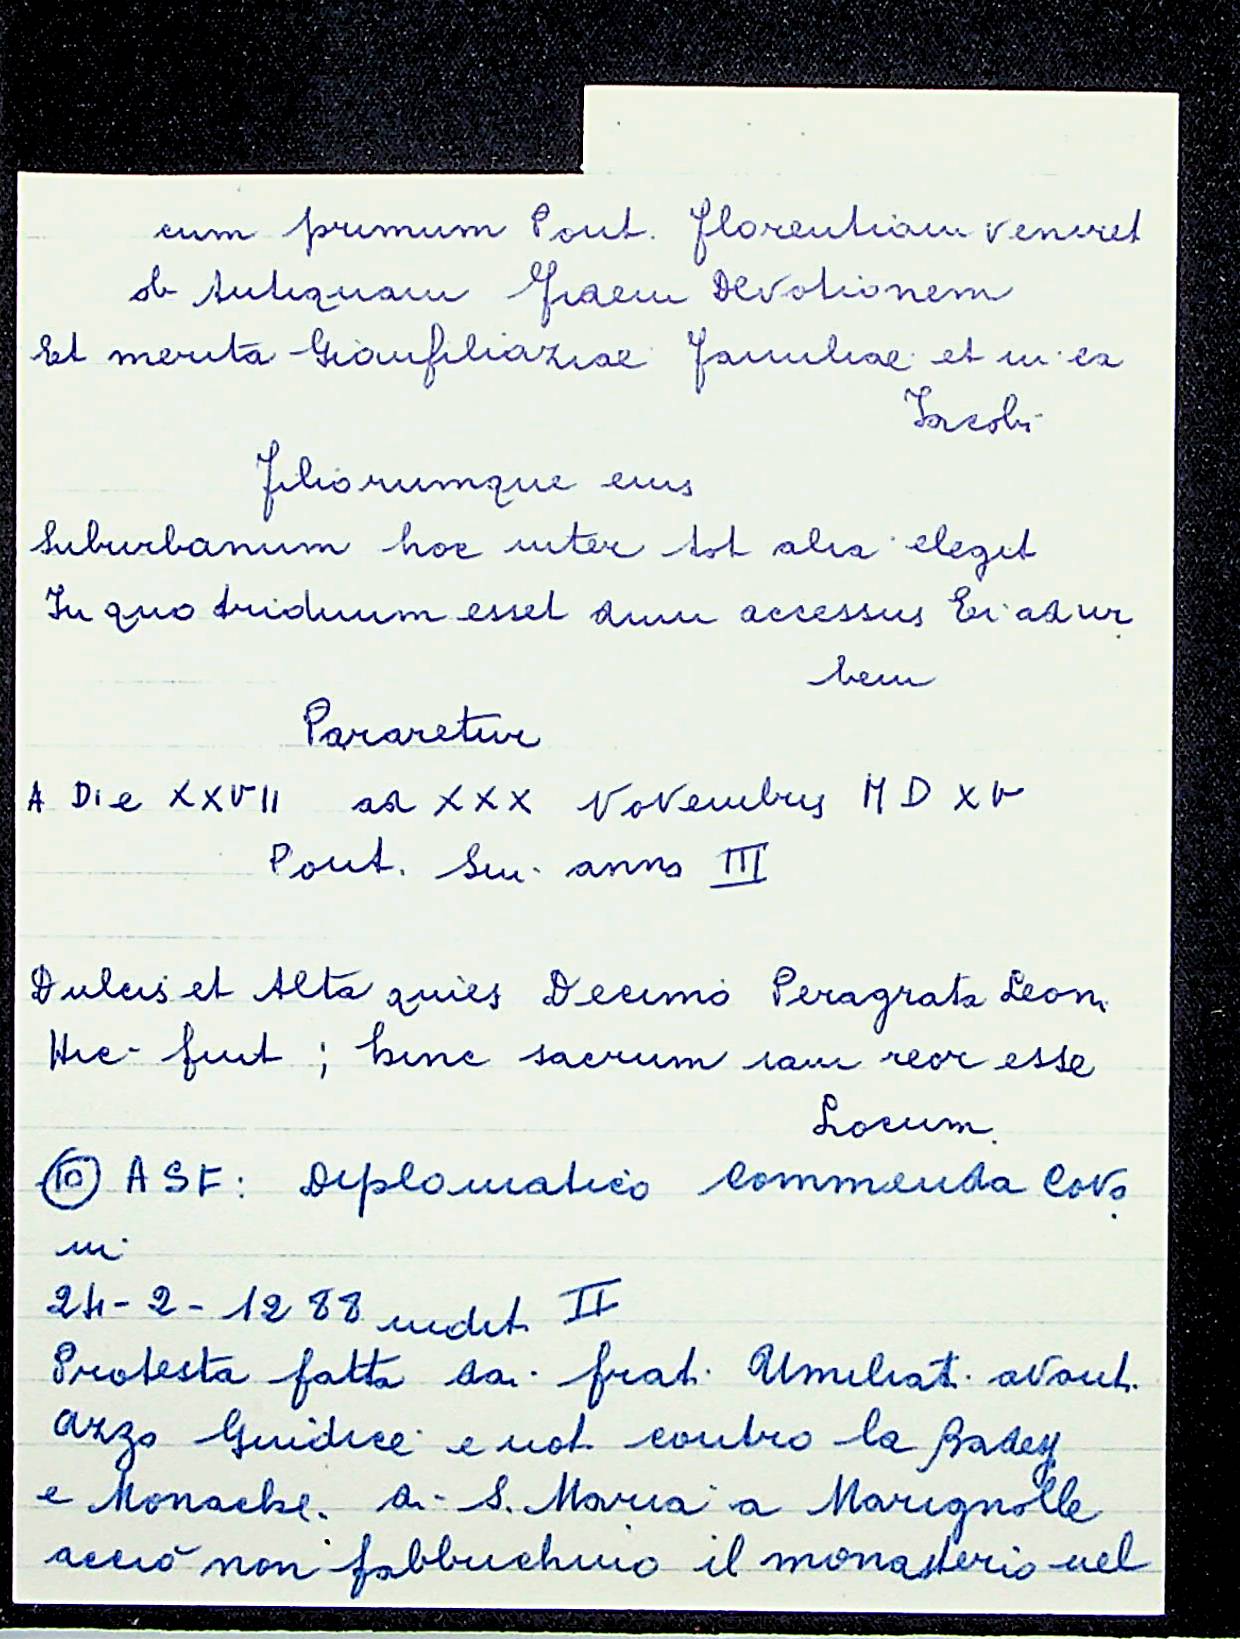 cum primum Pont. Florentiam veniret
ob Antiquam Devotionem
Et merita Gianfiliaziae Familiae et in ea
Jacobi
filiorumque eius
Suburbanum hoc inter tot alia elegit
In quo triduum esset dum accessus Ei ad ur
bem
Pararetur
A Die XXVII ad XXX Novembris MDXV
Pont. Sui anno III
Dulcis et Alta quies Decimo Peragrata Leoni
Hic fuit ; hinc sacrum iam reor esse
Locum.
10 ASF: Diplomatico Commenda Covo
ni
24-2-1288 indit. II
Protesta fatta dai frati Umiliati avanti
Azzo Giudice e not. contro la
e Monache di S. Maria a Marignolle
acciò non fabbrichino il monasterio nel